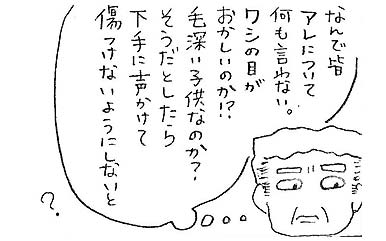 なんで皆
アレについて
何も言わない。
ワシの目が
おかしいのか!?
毛深い子供なのか?
そうだとしたら
下手に声かけて
傷つけないようにしないと
?